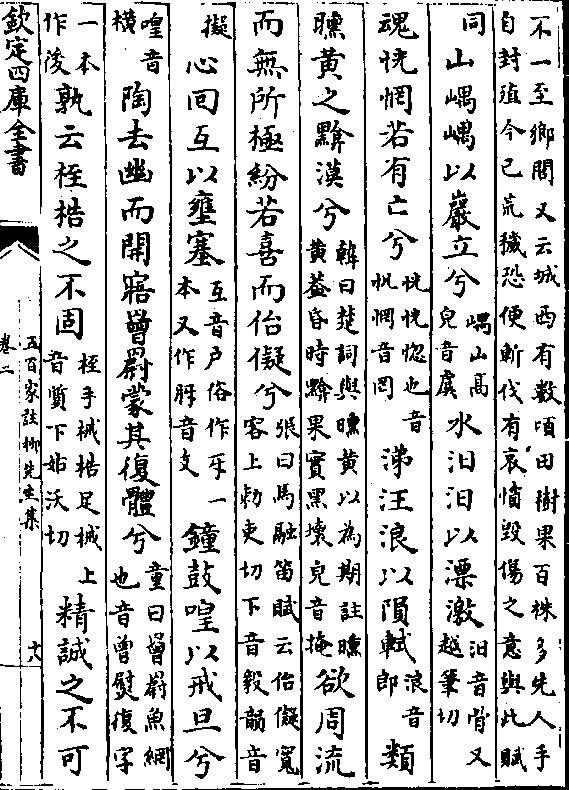 不一至鄉閭又云城西有數頃田樹果百株多先人手
自封殖今已荒穢恐便斬伐有哀憤毀傷之意與此賦
同山嵎嵎以巖立兮嵎山高皃音虞水汩汩以漂激汩音骨又越筆切
魂恍惘若有亡兮恍恍惚也音怳惘音罔涕汪浪以隕軾浪音郎類
曛黃之黭漠兮韓曰楚詞與曛黃以為期註曛黃葢昏時黭果實黑壞皃音掩欲周流
而無所極紛若喜而佁儗兮張曰馬融笛賦云佁儗寬容上勑吏切下音毅韻音
擬心回互以壅塞互音戶俗作㸦一本又作肝音支鐘鼓喤以戒旦兮
喤音橫陶去幽而開寤罾罻蒙其復體兮童曰罾罻魚網也音曾熨復字
一本作後孰云桎梏之不固桎手械梏足械上音質下姑沃切精誠之不可
欽定四庫全書
五百家註柳先生集
卷二
十八